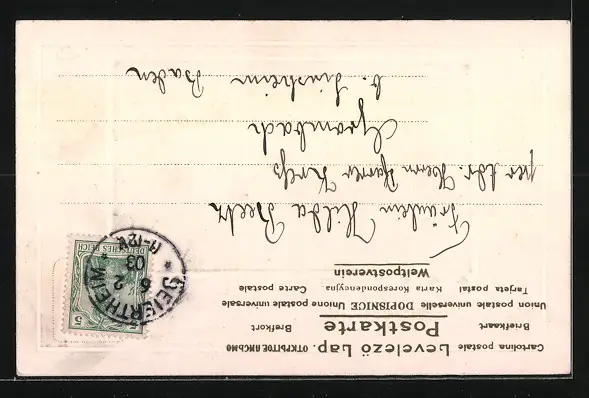 Cartolina postale Levelező Lap. ОТКРЫТОЕ ПИСЬМО
Briefkaart Postkarte Brefkort
Union postale universelle DOPISNICE Unione postale universale
Tarjeta postal Karta Korespondencyjna Carte postale
Weltpostverein
DEUTSCHES REICH
5 5
BEIERTHEIM
6 2
03
11-12V
Fräulein Hilda Beck
per Adr. Herrn Pfarrer Krebs
Grombach
b. Sinsheim Baden